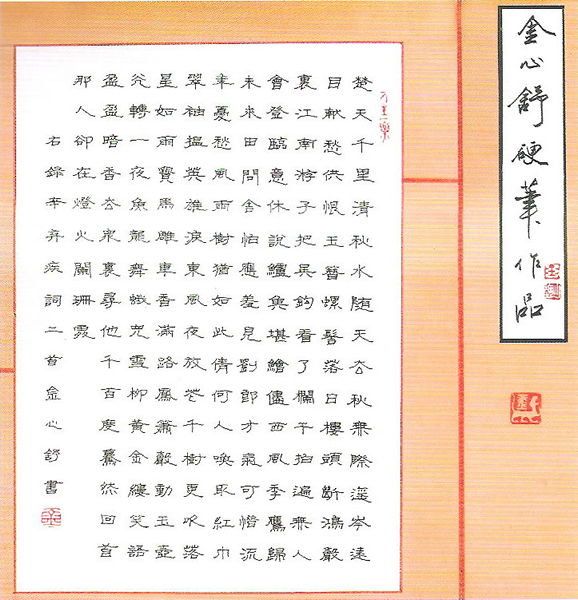 金心舒硬筆作品
楚天千里清秋水随天去秋無際遥岑遠
目献愁供恨玉簪螺髻落日樓頭斷鴻聲
裏江南游子把吳鉤看了欄干拍遍無人
會登臨意休説鱸魚堪鱠儘西風季鷹歸
未來田問舍怕應羞見劉郎才氣可惜流
年憂愁風雨樹猶如此倩何人喚取紅巾
翠袖揾英雄淚東風夜放花千樹更吹落
星如雨寶馬雕車香滿路鳳簫聲動玉壺
光轉一夜魚龍舞蛾兒雪柳黃金縷笑語
盈盈暗香去衆裏尋他千百度驀然回首
那人卻在燈火闌珊處
右錄辛弃疾詞二首金心舒書